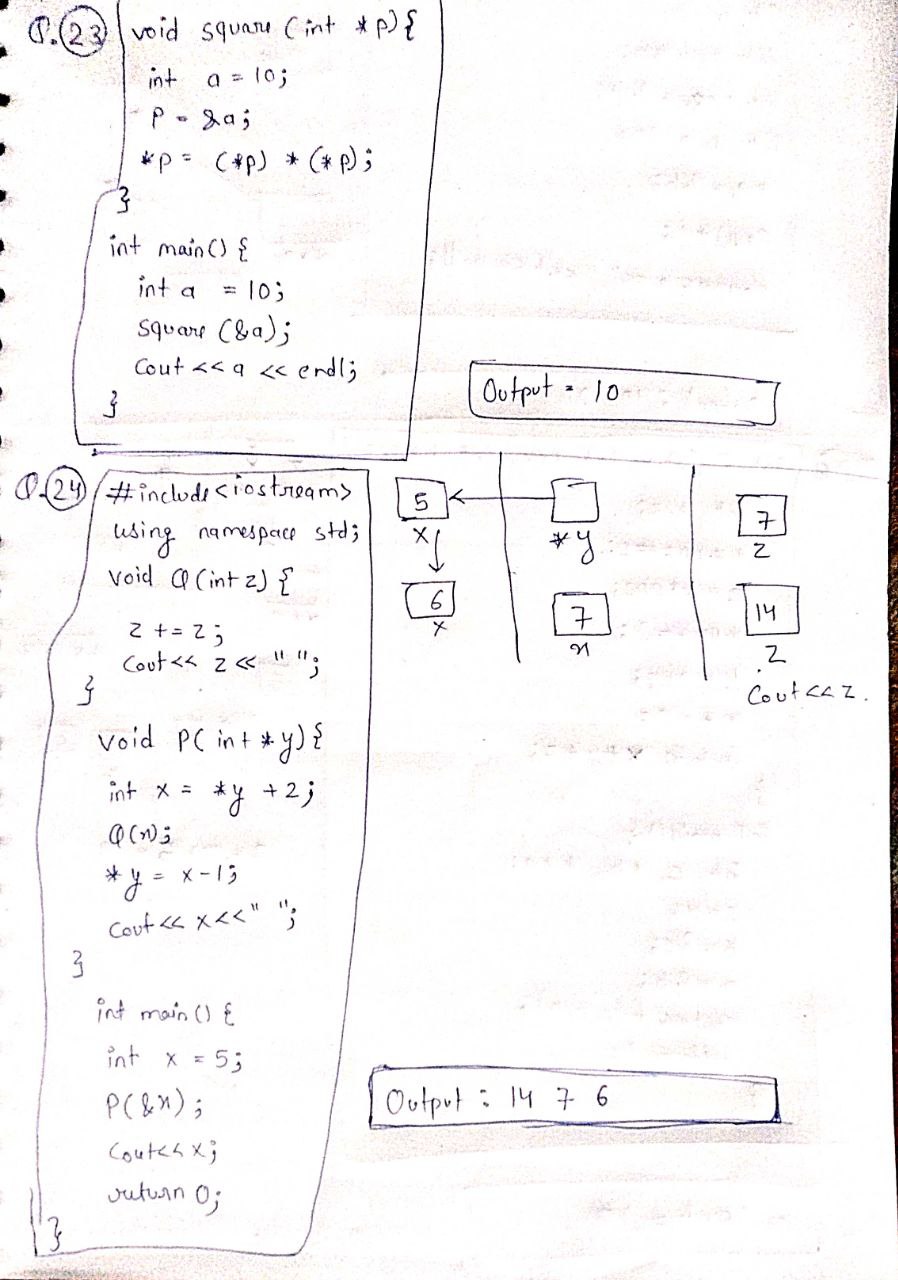 Q.23 void square (int *p){
int a = 10;
p = &a;
*p = (*p) * (*p);
}
int main() {
int a = 10;
square (&a);
Cout << a << endl;
}
Output = 10
Q.24 #include <iostream>
using namespace std;
void Q (int z) {
z += z;
Cout << z << " ";
}
void P( int *y) {
int x = *y + 2;
Q(x);
*y = x-1;
Cout << x << " ";
}
int main () {
int x = 5;
P(&x);
Cout<< x;
return 0;
}
5
x
6
x
*y
7
x
7
z
14
z
Cout << z.
Output : 14 7 6